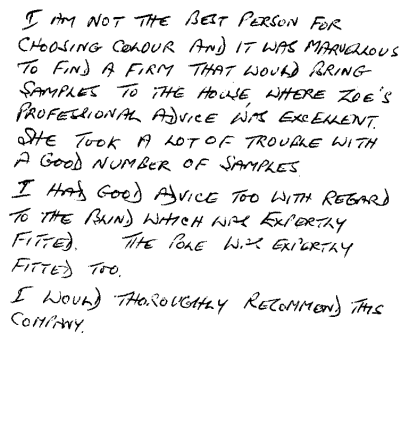 I AM NOT THE BEST PERSON FOR
CHOOSING COLOUR AND IT WAS MARVELLOUS
TO FIND A FIRM THAT WOULD BRING
SAMPLES TO THE HOUSE, WHERE ZOE'S
PROFESSIONAL ADVICE WAS EXCELLENT.
SHE TOOK A LOT OF TROUBLE WITH
A GOOD NUMBER OF SAMPLES
I HAD GOOD ADVICE TOO WITH REGARD
TO THE BLIND WHICH WAS EXPERTLY
FITTED. THE POLE WAS EXPERTLY
FITTED TOO.
I WOULD THOROUGHLY RECOMMEND THIS
COMPANY.